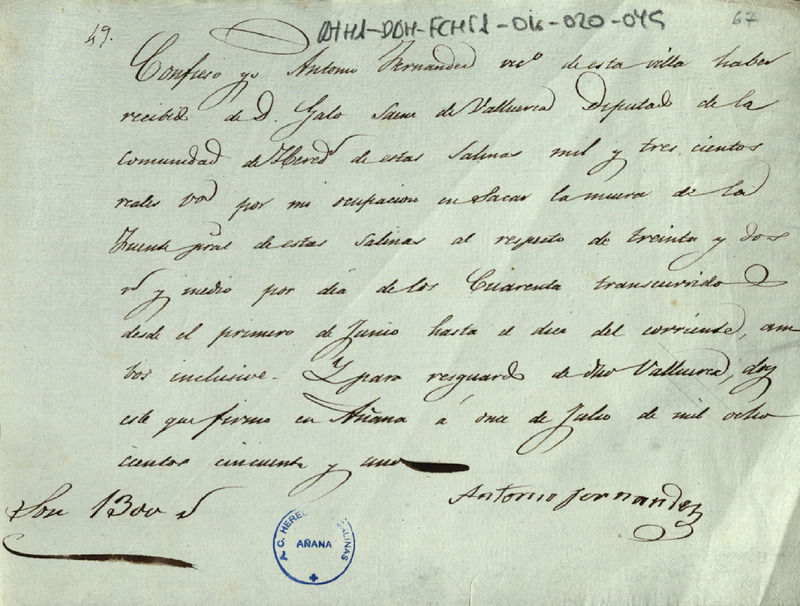 49.
ATHA-DAH-FCHSA-016-020-045
67
Confieso yo Antonio Fernandez vecº de esta villa haber
recibido de D. Galo Saenz de Valluerca Diputado de la
comunidad de Hered.s de estas Salinas mil y tres cientos
reales von por mi ocupacion en sacar la muera de la
Fuente pral de estas Salinas al respeto de treinta y dos
rs y medio por dia de los Cuarenta transcurridos
desde el primero de Junio hasta el diez del corriente, am
bos inclusive. Y para resguardo de dho Valluerca, doy
este que firmo en Añana á once de Julio de mil ocho
cientos cincuenta y uno
Son 1300 rs
Antonio Fernandez
A. C. HERED SALINAS
AÑANA